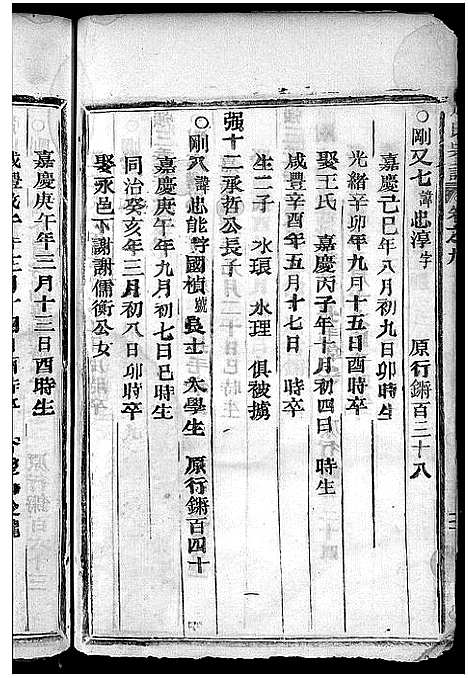 ○剛又七諱忠淳字 原行鏘百三十八
嘉慶己巳年八月初九日卯時生
光緒辛卯年九月十五日酉時卒
娶王氏 嘉慶丙子年十月初四日 時生
咸豐辛酉年五月十七日 時卒
生二子 水環 水理 俱被擄
强十二承哲公長子
○剛八諱忠能字國楨號 士 太學生 原行鏘百四十
嘉慶庚午年九月初七日巳時生
同治癸亥年三月初八日卯時卒
娶永邑下謝謝儒衡公女
嘉慶庚午年三月十三日酉時生